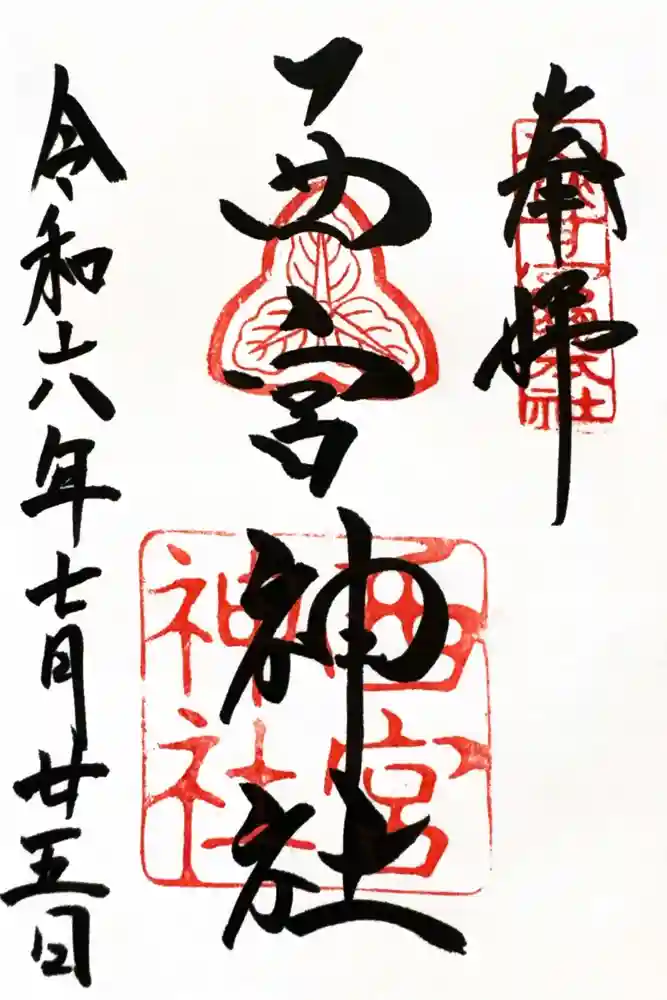 奉拝
本社
西宮神社
西宮
神社
令和六年七月廿五日